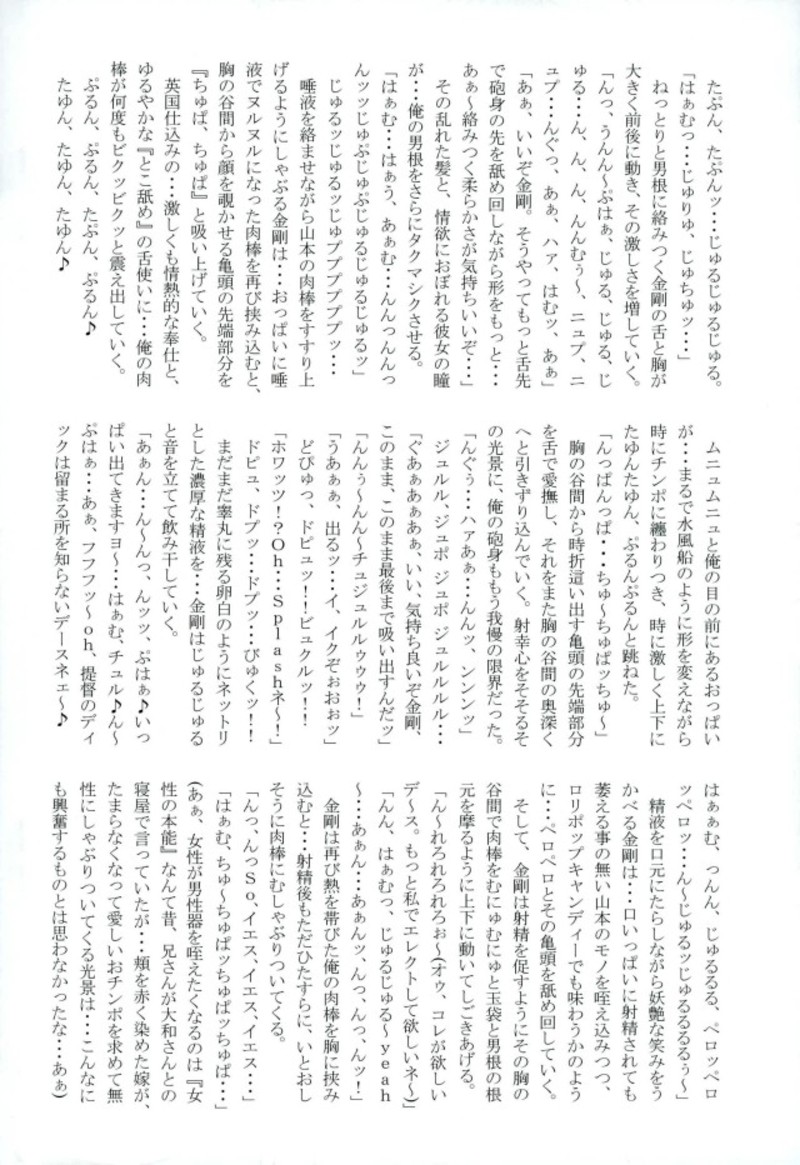 たぷん、たぷんッ・・・じゅるじゅるじゅる。
「はぁむっ・・・じゅりゅ、じゅちゅッ・・・」
ねっとりと男根に絡みつく金剛の舌と胸が
大きく前後に動き、その激しさを増していく。
「んっ、うんん～ぷはぁ、じゅる、じゅる、じ
ゅる・・・ん、ん、ん、んんむぅ～、ニュプ、ニ
ュプ・・・んぐっ、あぁ、ハァ、はむッ、あぁ」
「あぁ、いいぞ金剛。そうやってもっと舌先
で砲身の先を舐め回しながら形をもっと・・・
あぁ～絡みつく柔らかさが気持ちいいぞ・・・」
その乱れた髪と、情欲におぼれる彼女の瞳
が・・・俺の男根をさらにタクマシクさせる。
「はぁむ・・・はぁう、あぁむ・・・んんっんんっ
んッッじゅぷじゅぷじゅるじゅるじゅるッ」
じゅるッじゅるッじゅプププププッ・・・
唾液を絡ませながら山本の肉棒をすすり上
げるようにしゃぶる金剛は・・・おっぱいに唾
液でヌルヌルになった肉棒を再び挟み込むと、
胸の谷間から顔を覗かせる亀頭の先端部分を
『ちゅぱ、ちゅぱ』と吸い上げていく。
英国仕込みの・・・激しくも情熱的な奉仕と、
ゆるやかな『とこ舐め』の舌使いに・・・俺の肉
棒が何度もビクッビクッと震え出していく。
ぷるん、ぷるん、たぷん、ぷるん♪
たゆん、たゆん、たゆん♪
ムニュムニュと俺の目の前にあるおっぱい
が・・・まるで水風船のように形を変えながら
時にチンポに纏わりつき、時に激しく上下に
たゆんたゆん、ぷるんぷるんと跳ねた。
「んっぱんっぱ・・・ちゅ～ちゅぱッちゅ～」
胸の谷間から時折這い出す亀頭の先端部分
を舌で愛撫し、それをまた胸の谷間の奥深く
へと引きずり込んでいく。射幸心をそそるそ
の光景に、俺の砲身ももう我慢の限界だった。
「んぐぅ・・・ハァあぁ・・・んんッ、ンンンッ」
ジュルル、ジュポ ジュポ ジュルルルル・・・
「ぐあぁあぁあぁ、いい、気持ち良いぞ金剛、
このまま、このまま最後まで吸い出すんだッ」
「んんぅ～んん～チュジュルルゥゥゥ！」
「うあぁぁ、出るッ・・・イ、イクぞぉおぉッ」
どぴゅっ、ドピュッ！！ビュクルッ！！！
「ホワッツ！？Oh・・・Splashネ～！」
ドピュ、ドプッ・・・ドプッ・・・びゅくッ！！！
まだまだ睾丸に残る卵白のようにネットリ
とした濃厚な精液を・・・金剛はじゅるじゅる
と音を立てて飲み干していく。
「あぁん・・・ん～んっ、んッッ、ぷはぁ♪いっ
ぱい出てきますヨ～・・・はぁむ、チュル♪ん～
ぷはぁ・・・あぁ、フフフッ～oh、提督のディ
ックは留まる所を知らないデースネェ～♪
はぁぁむ、つんん、じゅるるる、ペロッペロ
ッペロッ・・・ん～じゅるッじゅるるるるぅ～」
精液を口元にたらしながら妖艶な笑みをう
かべる金剛は・・・口いっぱいに射精されても
萎える事の無い山本のモノを咥え込みつつ、
ロリポップキャンディーでも味わうかのよう
に・・・ペロペロとその亀頭を舐め回していく。
そして、金剛は射精を促すようにその胸の
谷間で肉棒をむにゅむにゅと玉袋と男根の根
元を摩るように上下に動いてしごきあげる。
「ん～れろれろれろぉ～(オゥ、コレが欲しい
デース。もっと私でエレクトして欲しいネ～)」
「んん、はぁむっ、じゅるじゅる～yeah
～・・・あぁん・・・あぁんッ、んっ、んっ、んッ！」
金剛は再び熱を帯びた俺の肉棒を胸に挟み
込むと・・・射精後もただひたすらに、いとおし
そうに肉棒にむしゃぶりついてくる。
「んっ、んっSo、イエス、イエス、イエス・・・」
「はぁむ、ちゅ～ちゅぱッちゅぱッちゅぱ・・・」
(あぁ、女性が男性器を咥えたくなるのは『女
性の本能』なんて昔、兄さんが大和さんとの
寝屋で言っていたが・・・頬を赤く染めた嫁が、
たまらなくなって愛しいおチンポを求めて無
性にしゃぶりついてくる光景は・・・こんなに
も興奮するものとは思わなかったな・・・あぁ)